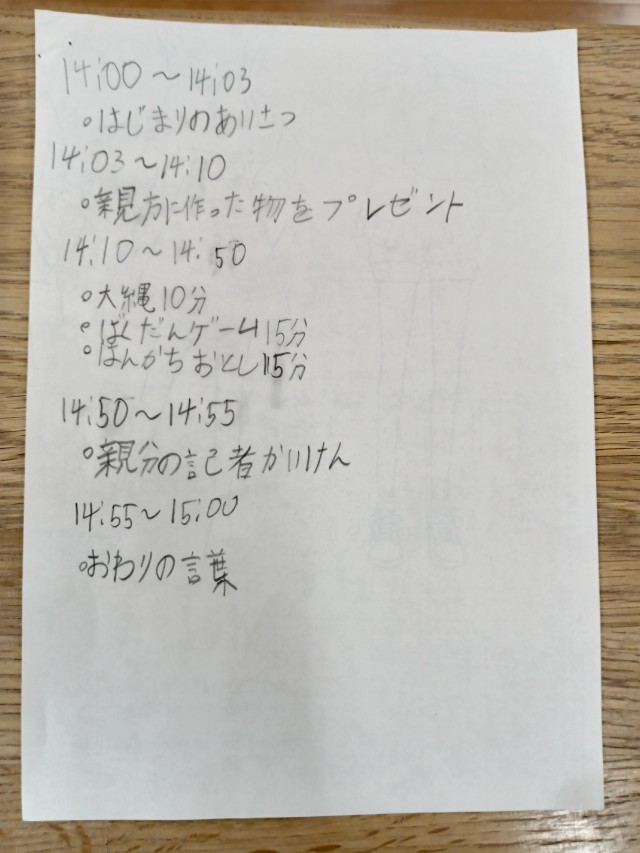 14:00～14:03
○はじまりのあいさつ
14:03～14:10
○親方に作った物をプレゼント
14:10～14:50
○大縄10分
○ばくだんゲーム15分
○はんかちおとし15分
14:50～14:55
○親分の記者かいけん
14:55～15:00
○おわりの言葉